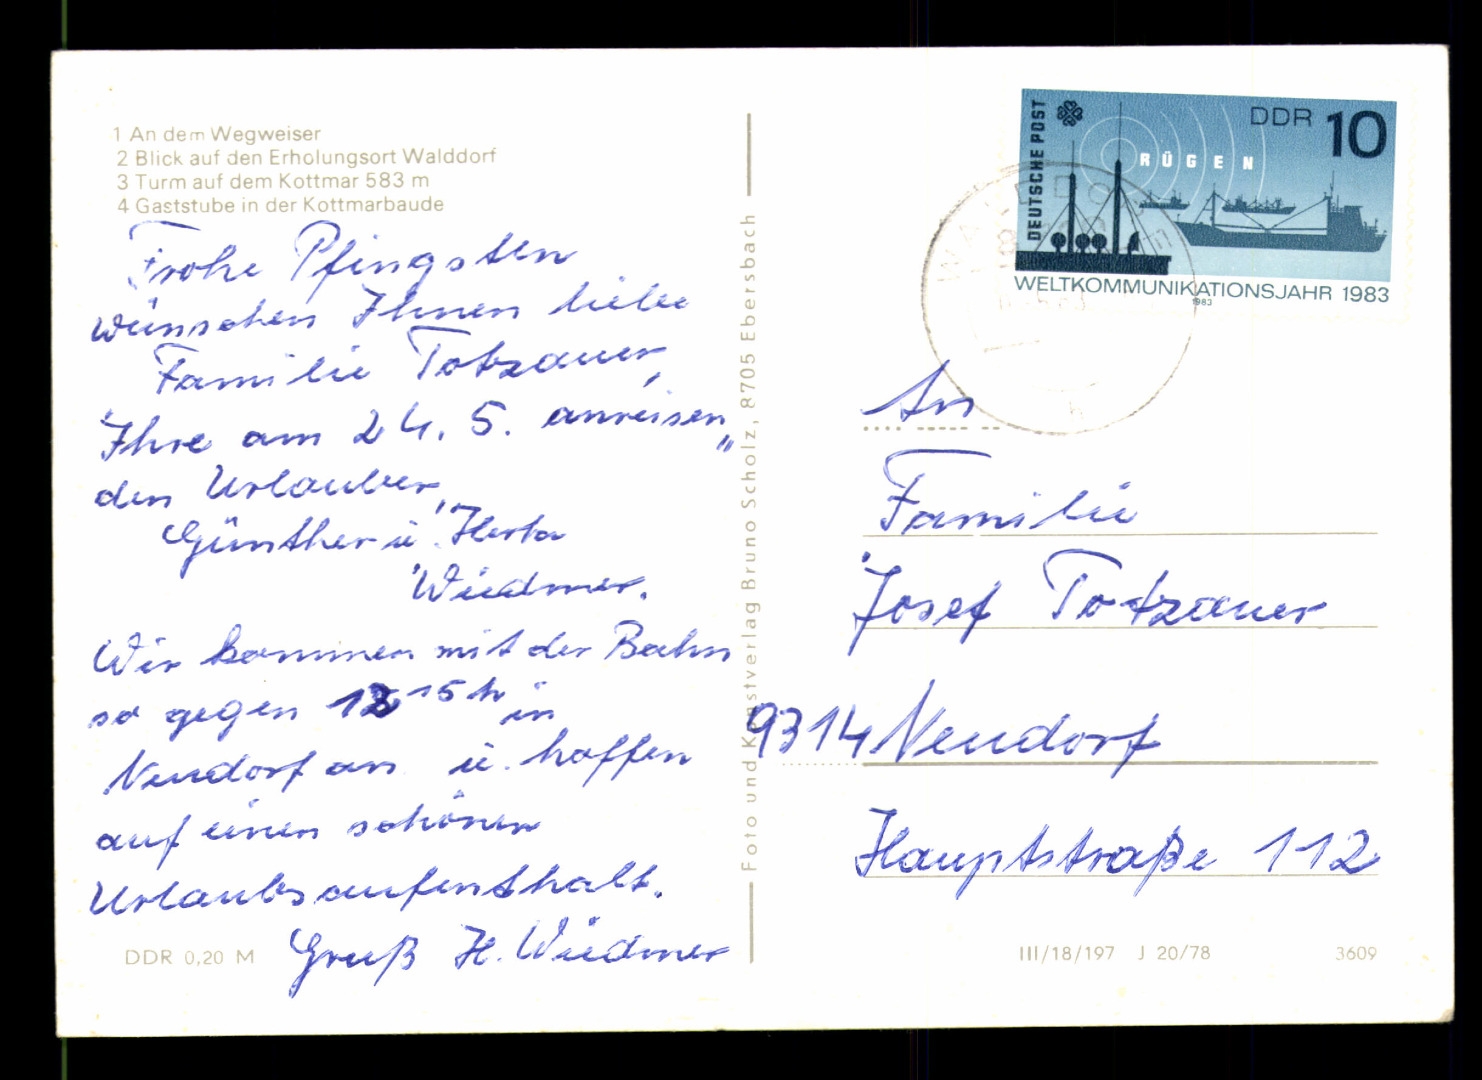 1 An dem Wegweiser
2 Blick auf den Erholungsort Walddorf
3 Turm auf dem Kottmar 583 m
4 Gaststube in der Kottmarbaude
Frohe Pfingsten
wünschen Ihnen liebe
Familie Totzauer,
Ihre am 24. 5. anreisen„
den Urlauber,
Günther u. Herta
Wiedmer.
Wir kommen mit der Bahn
so gegen 13 15 h in
Neudorf an u. hoffen
auf einen schönen
Urlaubsaufenthalt.
Gruß H. Wiedmer
DDR 0,20 M
Foto und Kunstverlag Bruno Scholz, 8705 Ebersbach
DEUTSCHE POST
DDR 10
RÜGEN
WELTKOMMUNIKATIONSJAHR 1983
1983
An
Familie
Josef Totzauer
9314 Neudorf
Hauptstraße 112
III/18/197 J 20/78
3609